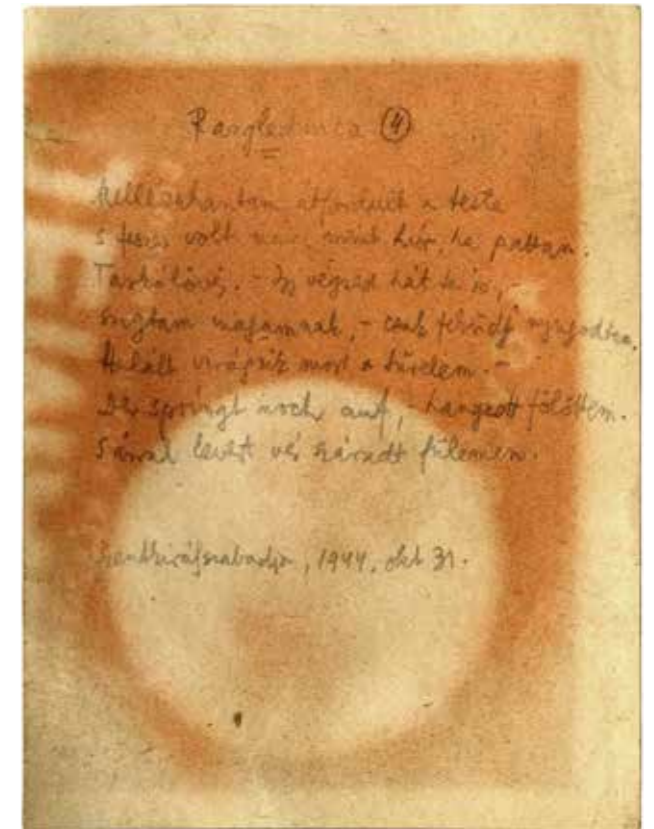 Razglednica (4)
Mellézuhantam, átfordult a teste
s feszes volt már, mint húr, ha pattan.
Tarkólövés. - Így végzed hát te is, -
súgtam magamnak, - csak feküdj nyugodtan.
Halált virágzik most a türelem. -
Der springt noch auf, - hangzott fölöttem.
Sárral kevert vér száradt fülemen.
Szentkirályszabadja, 1944, okt 31.